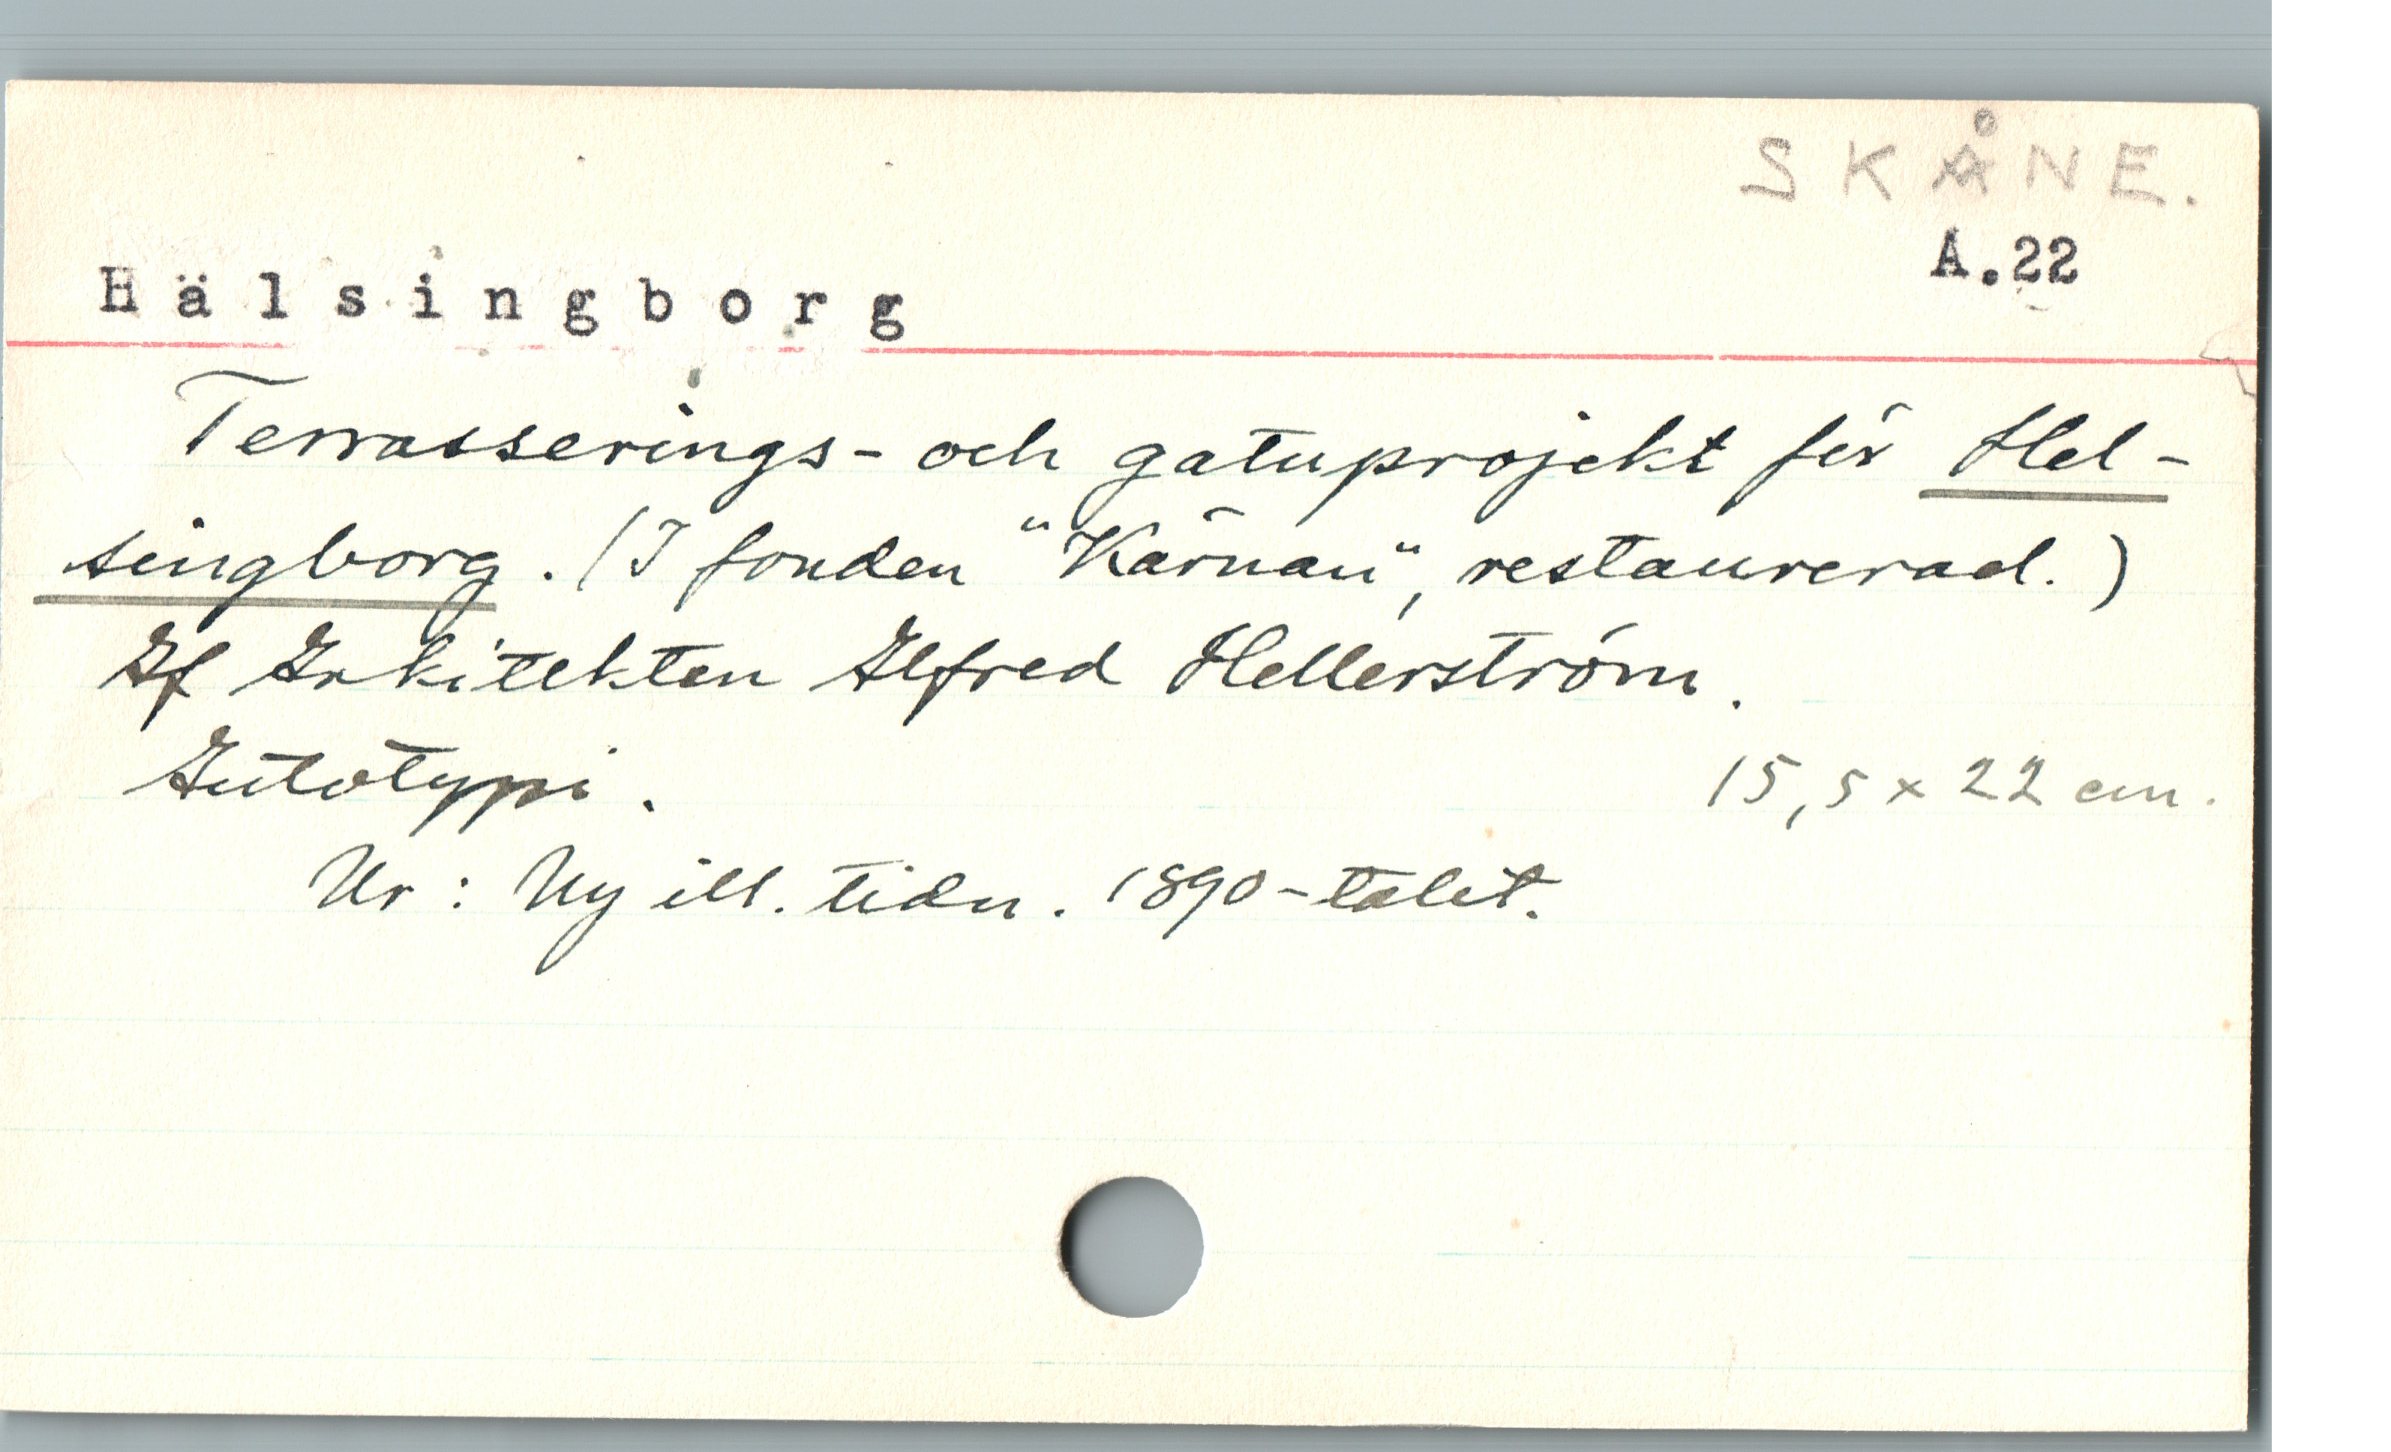 SKÅNE.
A.22
Hälsingborg
Terrasserings- och gatuprojekt för Hel-
singborg. (I fonden "Kärnan", restaurerad.)
Af Arkitekten Alfred Hellerström.
Autotypi. 15,5 x 22 cm.
Ur: Ny ill. tidn. 1890-talet.